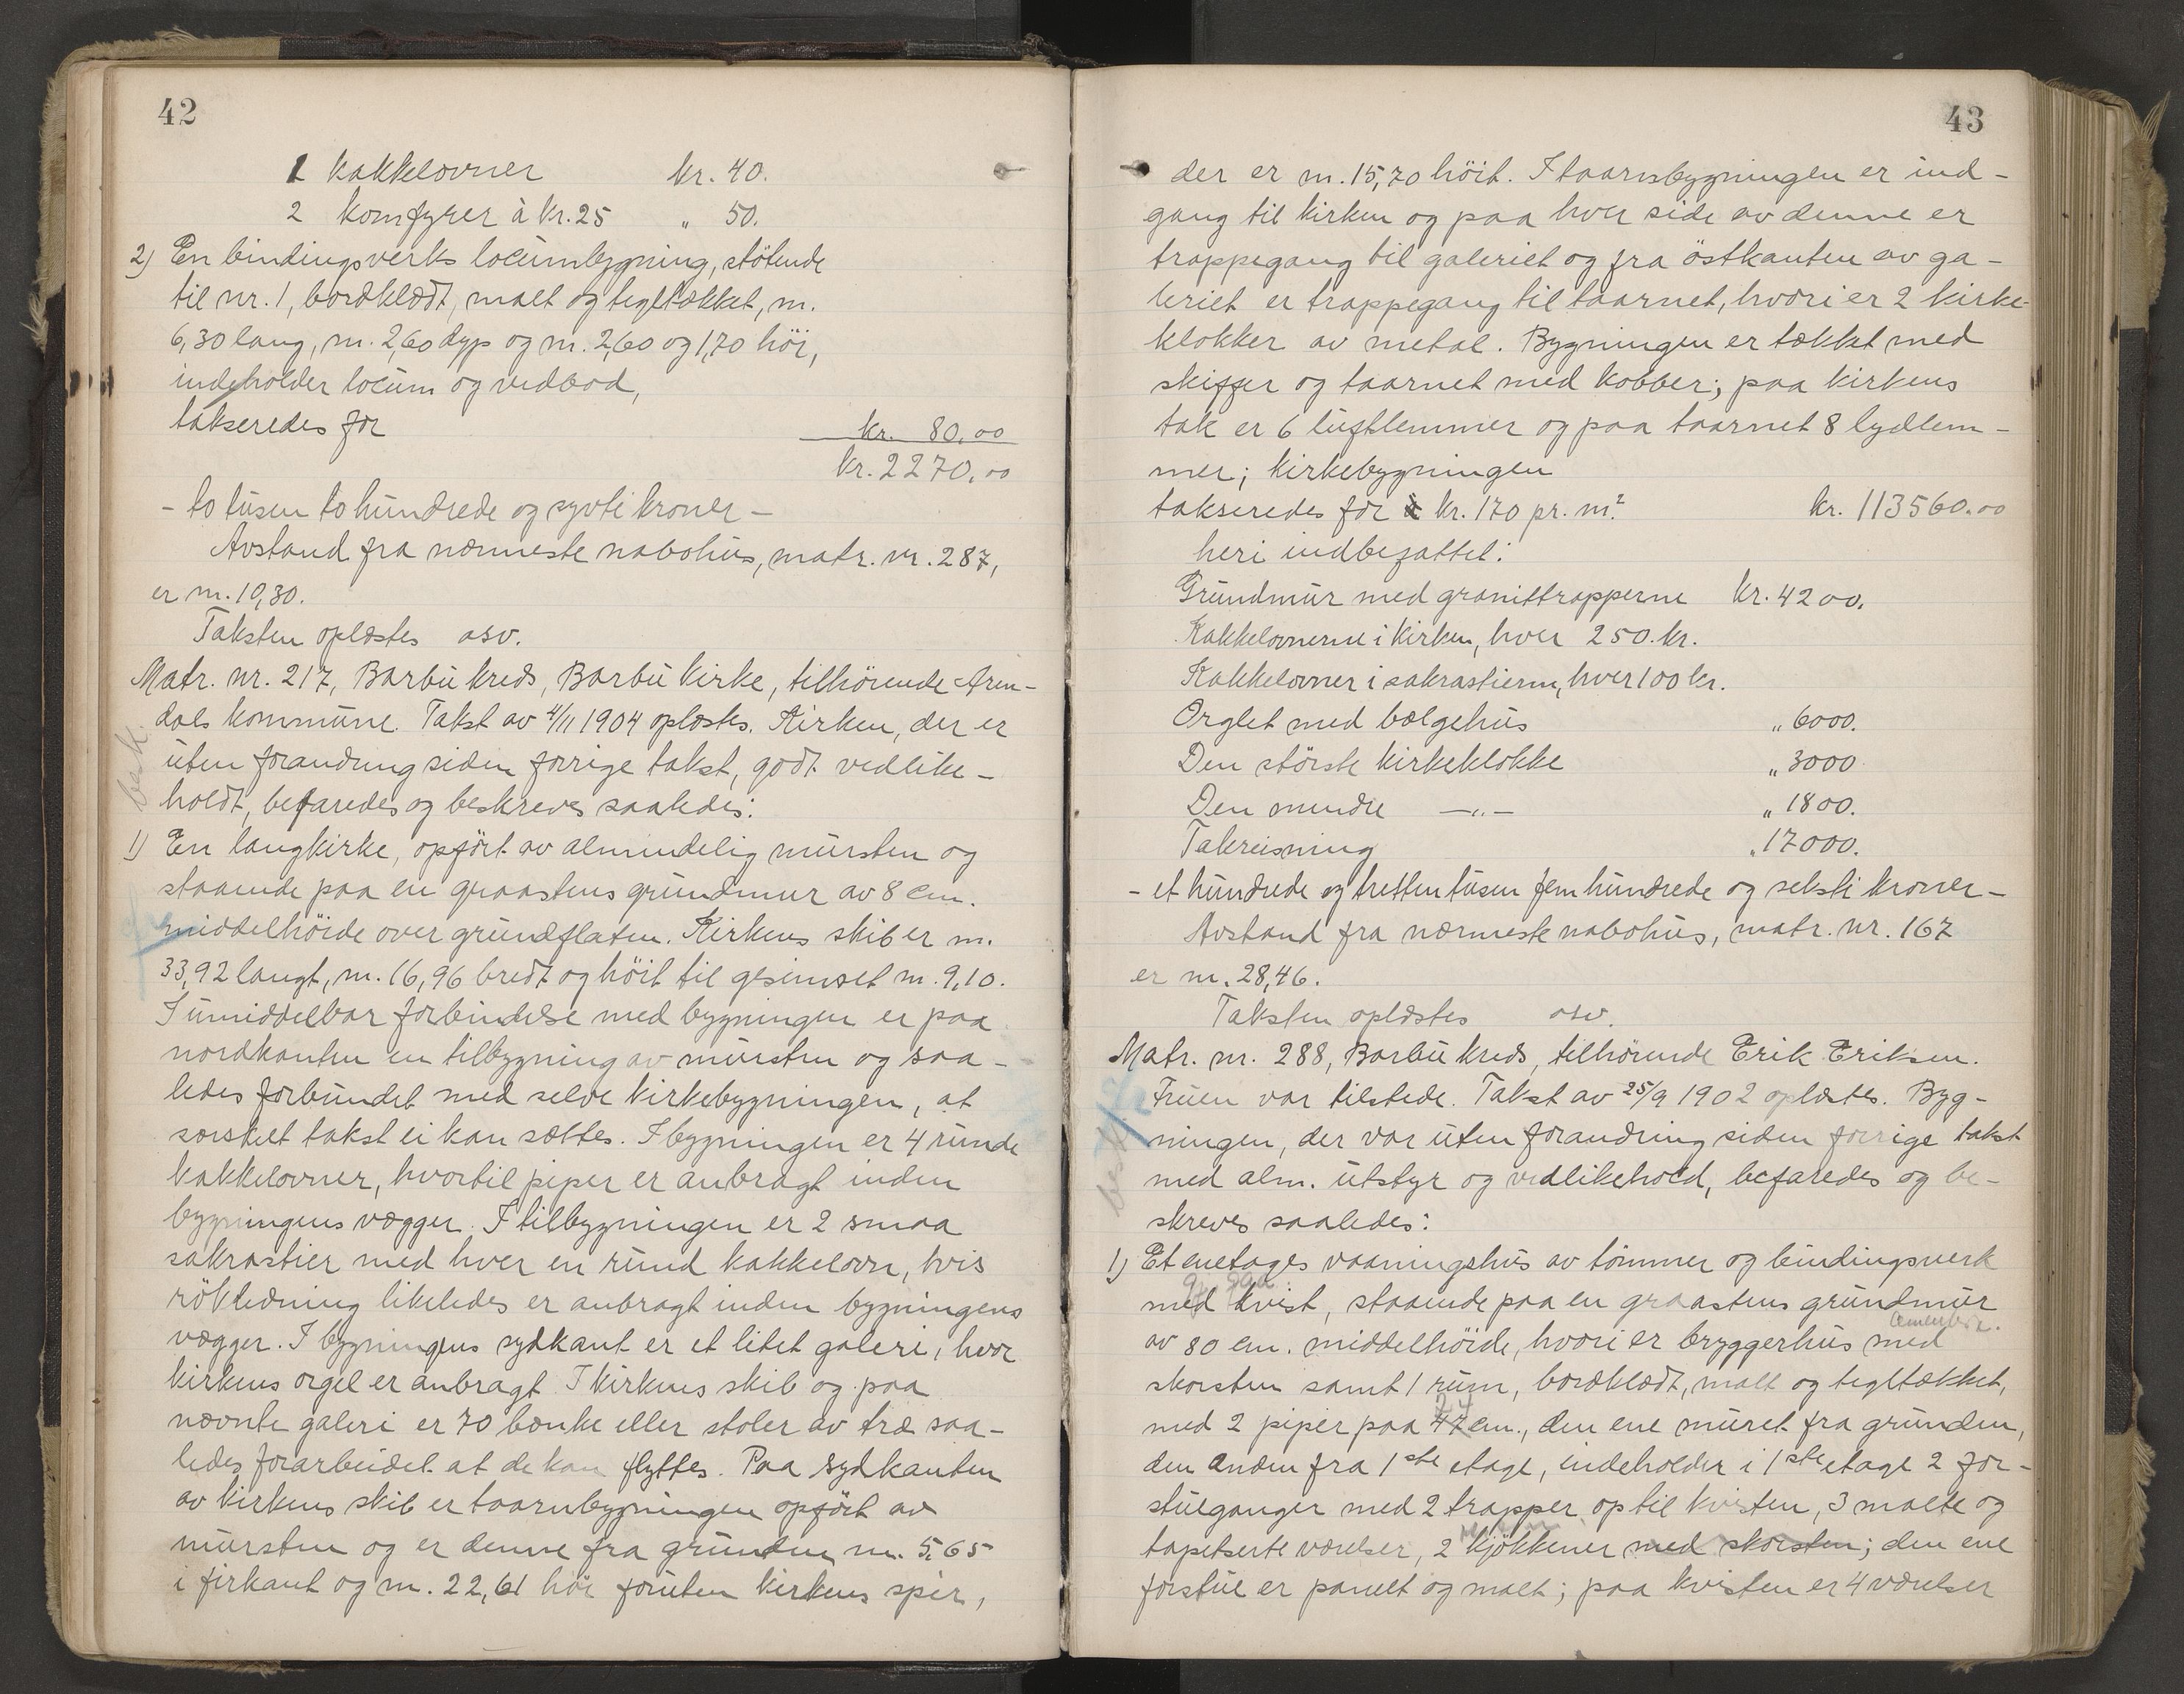 42
1 kakkelovner kr. 40.
2 komfyrer à kr. 25 " 50.
2) En bindingsverks locumbygning, stötende
til nr. 1, bordklædt, malt og tegltækket, m.
6,30 lang, m. 2,60 dyp og m. 2,60 og 1,70 höi,
indeholder locum og vedbod,
takseredes for kr. 80.00
kr. 2270.00
- to tusen to hundrede og sytti kroner -
Avstand fra nærmeste nabohus, matr. nr. 287,
er m. 10,30.
Taksten oplæstes osv.
Matr. nr. 217, Barbu kreds, Barbu kirke, tilhörende Aren-
dals kommune. Takst av 4/11 1904 oplæstes. Kirken, der er
uten forandring siden forrige takst, godt vedlike-
holdt, befaredes og beskreves saaledes:
1) En langkirke, opfört av almindelig mursten og
staaende paa en graastens grundmur av 8 cm.
middelhöide over grundflaten. Kirkens skib er m.
33,92 langt, m. 16,96 bredt og höit til gesimset m. 9,10.
I umiddelbar forbindelse med bygningen er paa
nordkanten en tilbygning av mursten og saa-
ledes forbundet med selve kirkebygningen, at
særskilt takst ei kan sættes. I bygningen er 4 runde
kakkelovner, hvortil piper er anbragt inden
bygningens vægger. I tilbygningen er 2 smaa
sakrastier med hver en rund kakkelovn, hvis
rökledning likeledes er anbragt inden bygningens
vægger. I bygningens sydkant er et litet galeri, hvor
kirkens orgel er anbragt. I kirkens skib og paa
nævnte galeri er 70 bænke eller stoler av træ saa-
ledes forarbeidet at de kan flyttes. Paa sydkanten
av kirkens skib er taarnbygningen opfört av
mursten og er denne fra grunden m. 5,65
i firkant og m. 22,61 höi foruten kirkens spir,
43
der er m. 15,70 höit. I taarnsbygningen er ind-
gang til kirken og paa hver side av denne er
trappegang til galeriet og fra östkanten av ga-
leriet er trappegang til taarnet, hvori er 2 kirke-
klokker av metal. Bygningen er tækket med
skiffer og taarnet med kobber; paa kirkens
tak er 6 luftlemmer og paa taarnet 8 lydlem-
mer; kirkebygningen
takseredes for à kr. 170 pr. m². kr. 113560.00
heri indbefattet:
Grundmur med granittrapperne kr. 4200.
Kakkelovnerne i kirken, hver 250. kr.
Kakkelovner i sakrastierne, hver 100 kr.
Orglet med bælgehus " 6000.
Den störste kirkeklokke " 3000
Den mindre —"— " 1800.
Takreisning " 17000.
- et hundrede og tretten tusen fem hundrede og seksti kroner -
Avstand fra nærmeste nabohus, matr. nr. 167
er m. 28,46.
Taksten oplæstes osv.
Matr. nr. 288, Barbu kreds, tilhörende Erik Eriksen.
Fruen var tilstede. Takst av 25/9 1902 oplæstes. Byg-
ningen, der var uten forandring siden forrige takst
med alm. utstyr og vedlikehold, befaredes og be-
skreves saaledes:
1) Et enetages vaaningshus av tömmer og bindingsverk
med kvist, staaende paa en graastens grundmur
av 80 cm. middelhöide, hvori er bryggerhus med
skorsten samt 1 rum, bordklædt, malt og tegltækket,
med 2 piper paa 47 cm., den ene muret fra grunden,
den anden fra 1ste etage, indeholder i 1ste etage 2 for-
stueganger med 2 trapper op til kvisten, 3 malte og
tapetserte værelser, 2 kjökkener med skorsten; den ene
forstue er panelt og malt; paa kvisten er 4 værelser